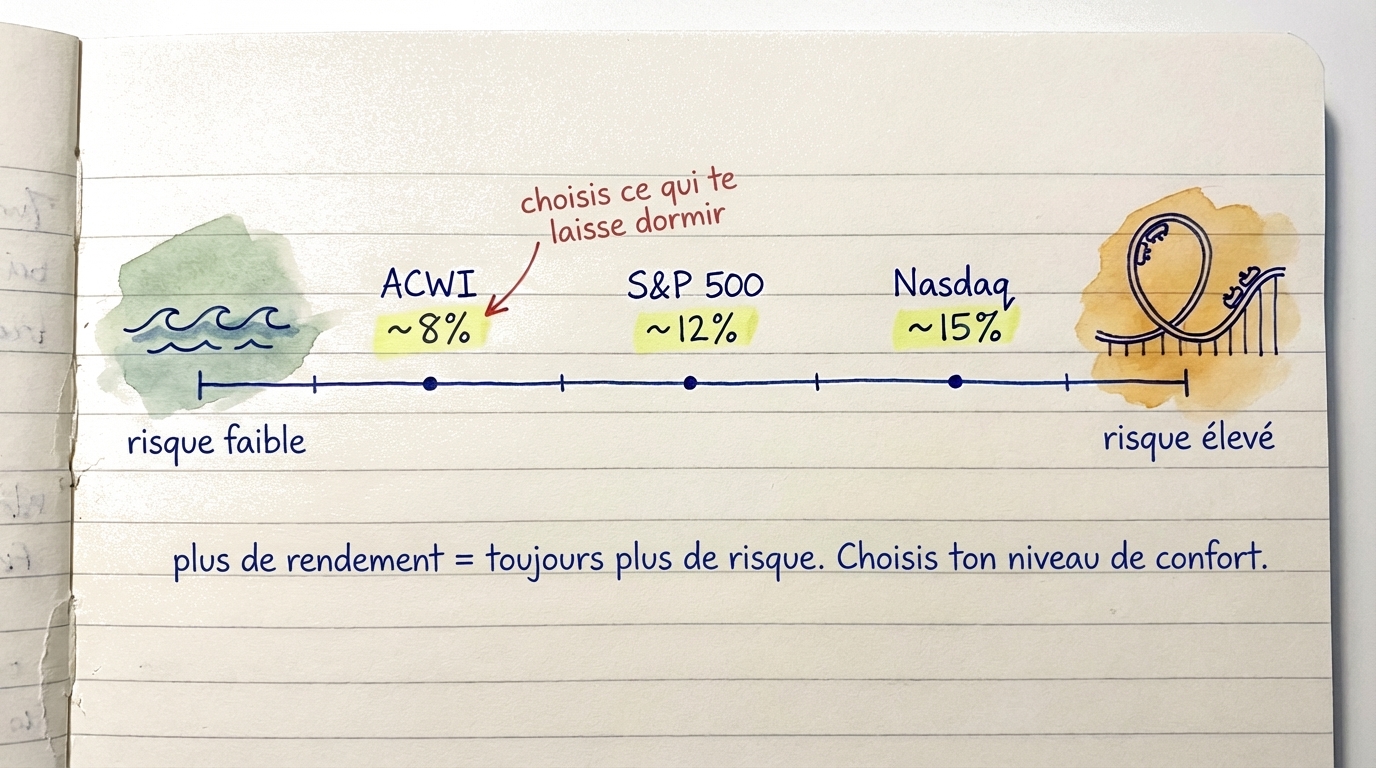 choisis ce qui te
laisse dormir
ACWI
S&P 500
Nasdaq
~8%
~12%
~15%
risque faible
risque élevé
plus de rendement = toujours plus de risque. Choisis ton niveau de confort.